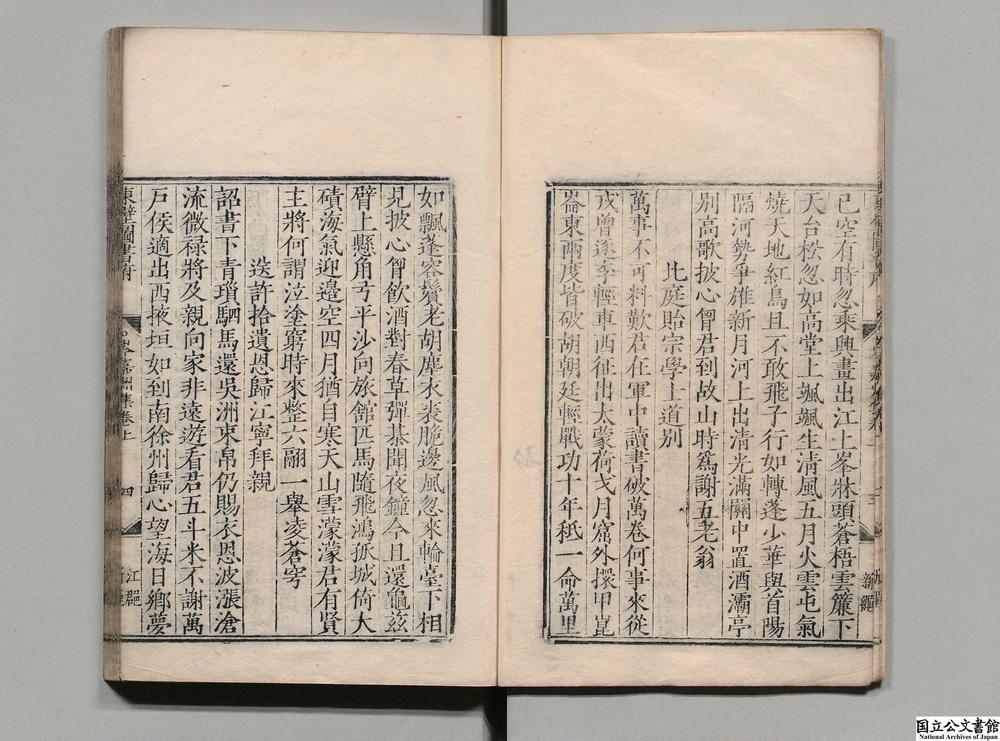 已空有時忽乘興畫出江上峯牀頭蒼梧雲簾下
天台松忽如高堂上颯颯生清風五月火雲屯氣
燒天地紅鳥且不敢飛子行如轉蓬少華與首陽
隔河勢爭雄新月河上出清光滿關中置酒灞亭
别高歌披心胷君到故山時爲謝五老翁
北庭貽宗學士道別
萬事不可料歎君在軍中讀書破萬卷何事來從
戎曾逐李輕車西征出太蒙荷戈月窟外擐甲崑
崙東兩度皆破胡朝廷輕戰功十年秖一命萬里
如飄蓬容鬢老胡塵衣裘脆邊風忽來輪臺下相
見披心胷飲酒對春草彈棊聞夜鐘今且還龜玆
臂上懸角弓平沙向旅館匹馬隨飛鴻孤城倚大
磧海氣迎邊空四月猶自寒天山雪濛濛君有賢
主將何謂泣塗窮時來整六翮一舉凌蒼穹
送許拾遺恩歸江寧拜親
詔書下青瑣駟馬還吳洲束帛仍賜衣恩波漲滄
流微禄將及親向家非遠遊看君五斗米不謝萬
戶侯適出西掖垣如到南徐州歸心望海日鄉夢
東壁圖書府
岑嘉州集卷上
四
江郡
国立公文書館
National Archives of Japan